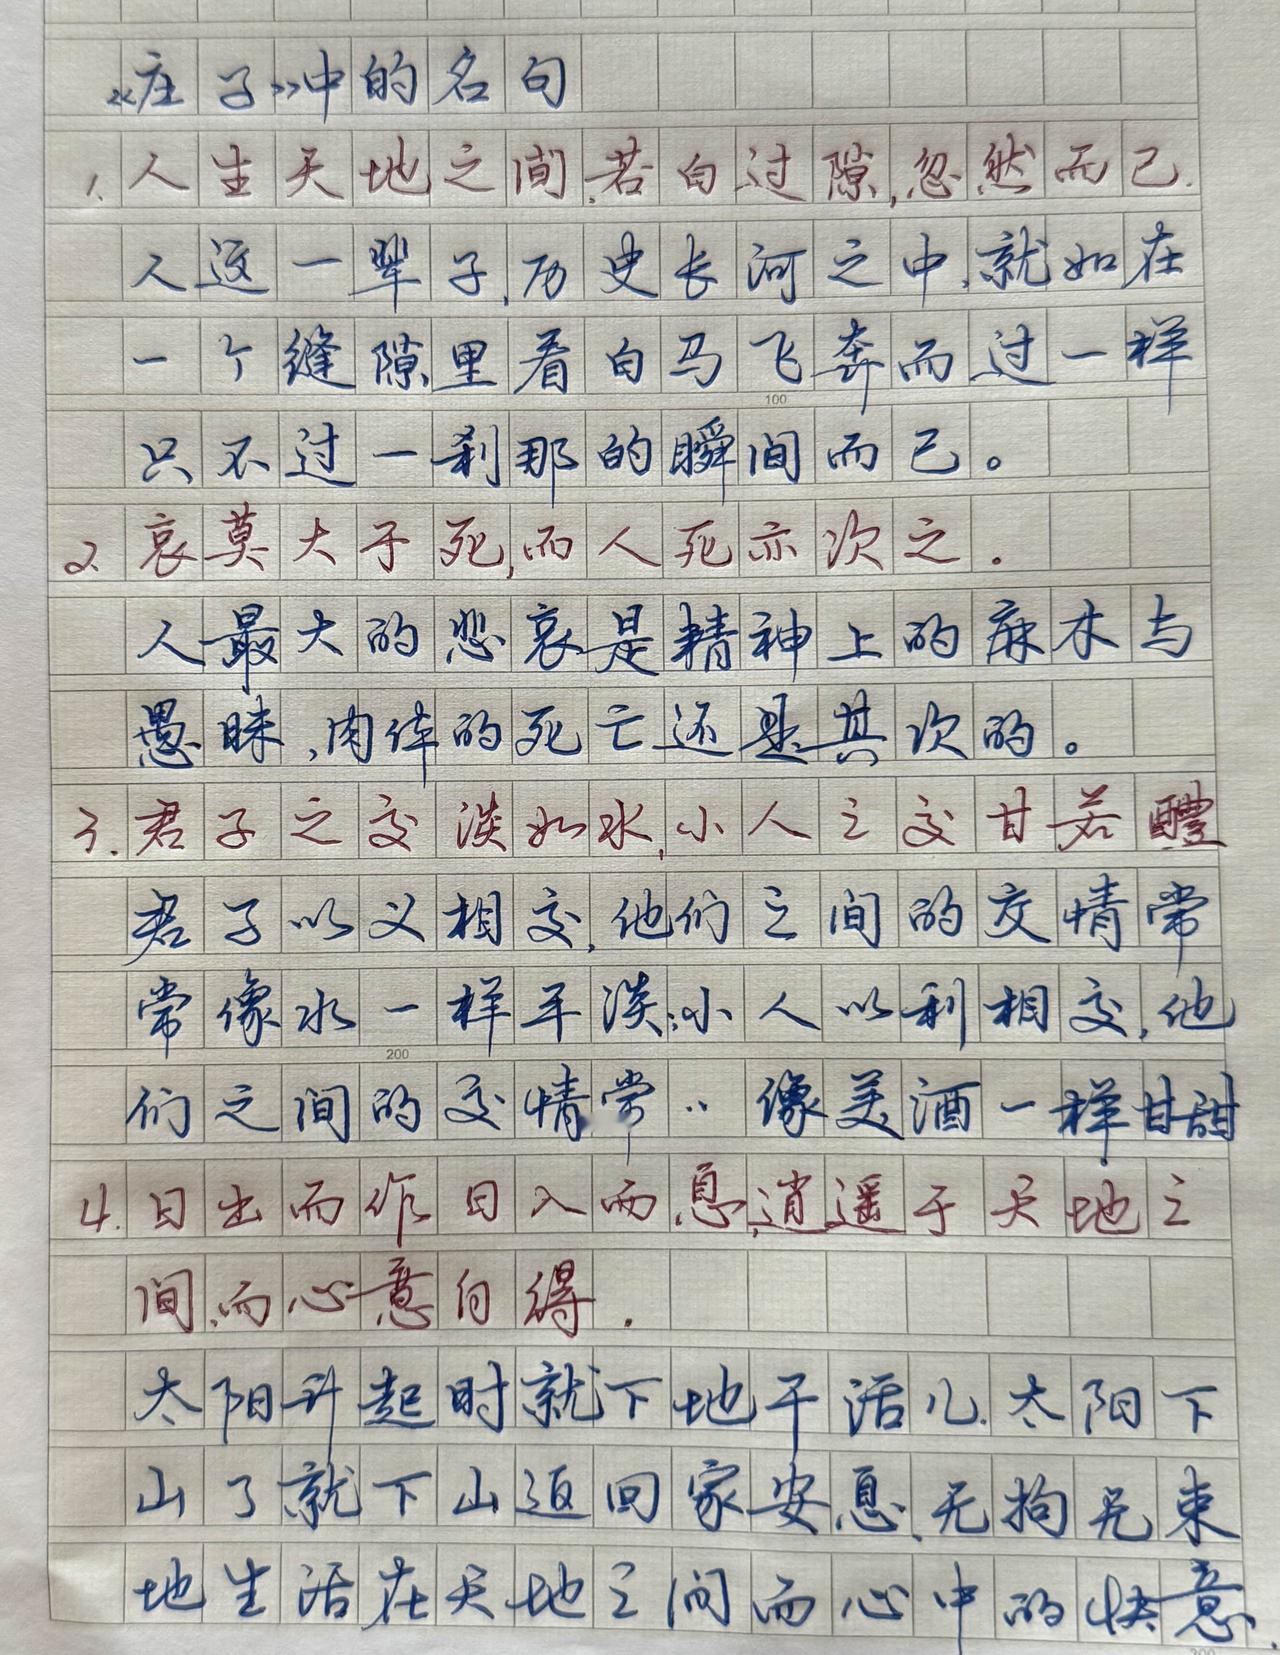 《庄子》中的名句
1. 人生天地之间,若白过隙,忽然而已.
人这一辈子,历史长河之中,就如在
一个缝隙里看白马飞奔而过一样
100
只不过一刹那的瞬间而已。
2. 哀莫大于死,而人死亦次之.
人最大的悲哀是精神上的麻木与
愚昧,肉体的死亡还是其次的。
3. 君子之交淡如水,小人之交甘若醴
君子以义相交,他们之间的交情常
常像水一样平淡;小人以利相交,他
200
们之间的交情常..像美酒一样甘甜
4. 日出而作日入而息,逍遥于天地之
间,而心意自得.
太阳升起时就下地干活儿.太阳下
山了就下山返回家安息,无拘无束
地生活在天地之间而心中的快意.
300